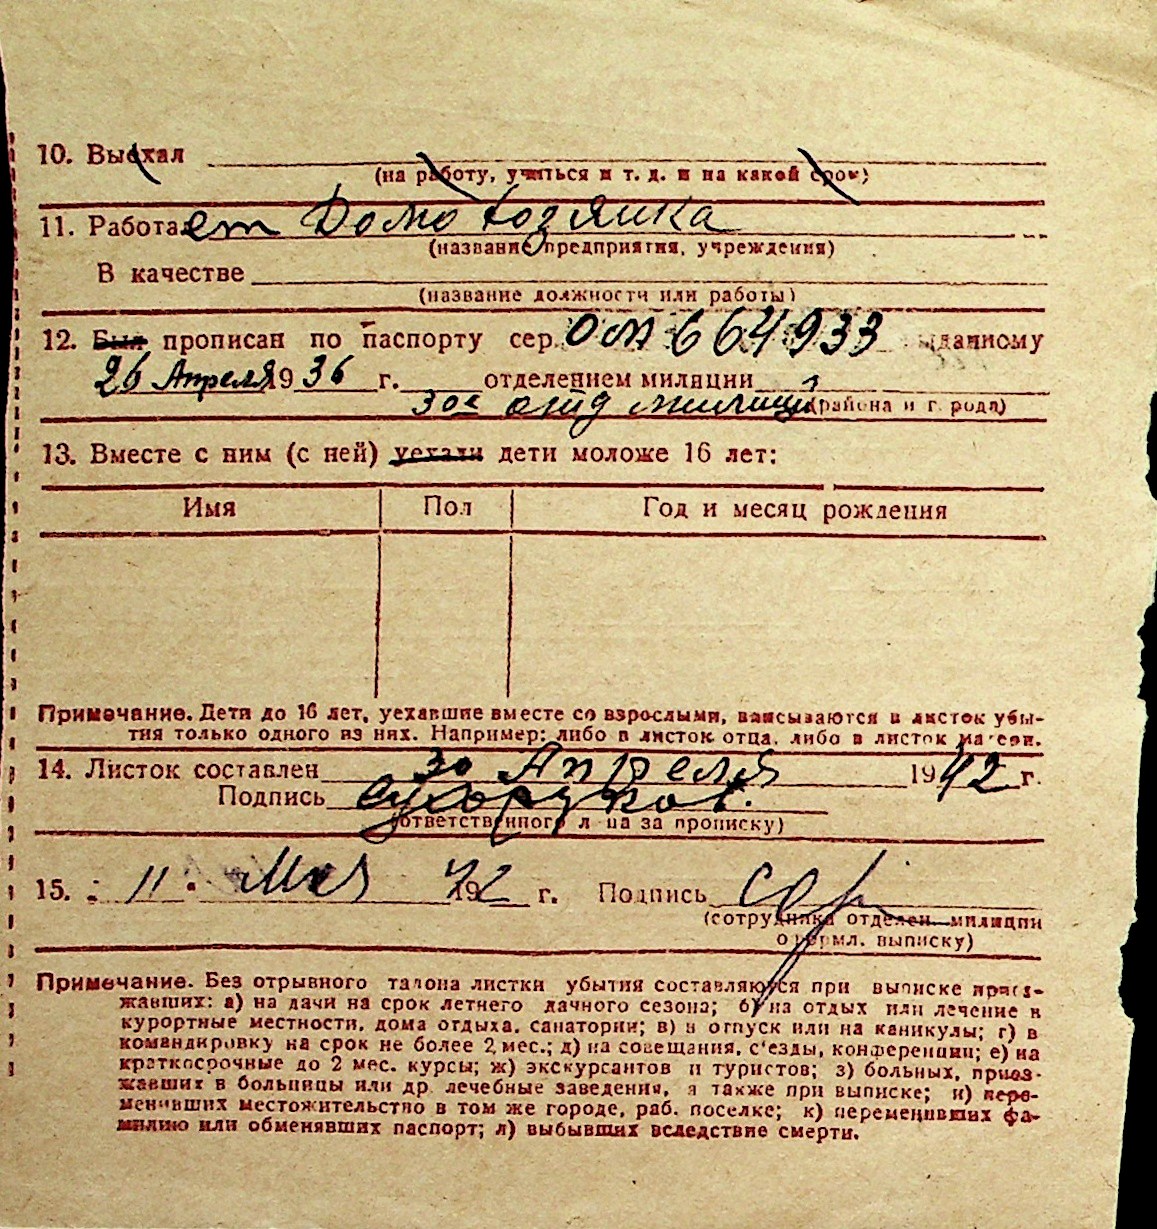 10. Выехал
(на работу, учиться и т. д. и на какой срок)
11. Работает Домохозяйка
(название предприятия, учреждения)
В качестве
(название должности или работы)
12. Был прописан по паспорту сер. 664933 выданному
26 Апреля 1936 г. отделением милиции
30е отд милиции (района и города)
13. Вместе с ним (с ней) уехали дети моложе 16 лет:
Имя Пол Год и месяц рождения
Примечание. Дети до 16 лет, уехавшие вместе со взрослыми, вписываются в листок убы-
тия только одного из них. Например: либо в листок отца, либо в листок матери.
14. Листок составлен 30 Апреля 1942 г.
Подпись
(ответственного лица за прописку)
15. 11 Мая 1942 г. Подпись
(сотрудника отделен. милиции
оформл. выписку)
Примечание. Без отрывного талона листки убытия составляются при выписке приез-
жавших: а) на дачи на срок летнего дачного сезона; б) на отдых или лечение в
курортные местности, дома отдыха, санатории; в) в отпуск или на каникулы; г) в
командировку на срок не более 2 мес.; д) на совещания, с'езды, конференции; е) на
краткосрочные до 2 мес. курсы; ж) экскурсантов и туристов; з) больных, приез-
жавших в больницы или др. лечебные заведения, а также при выписке; и) пере-
менивших местожительство в том же городе, раб. поселке; к) переменивших фа-
милию или обменявших паспорт; л) выбывших вследствие смерти.